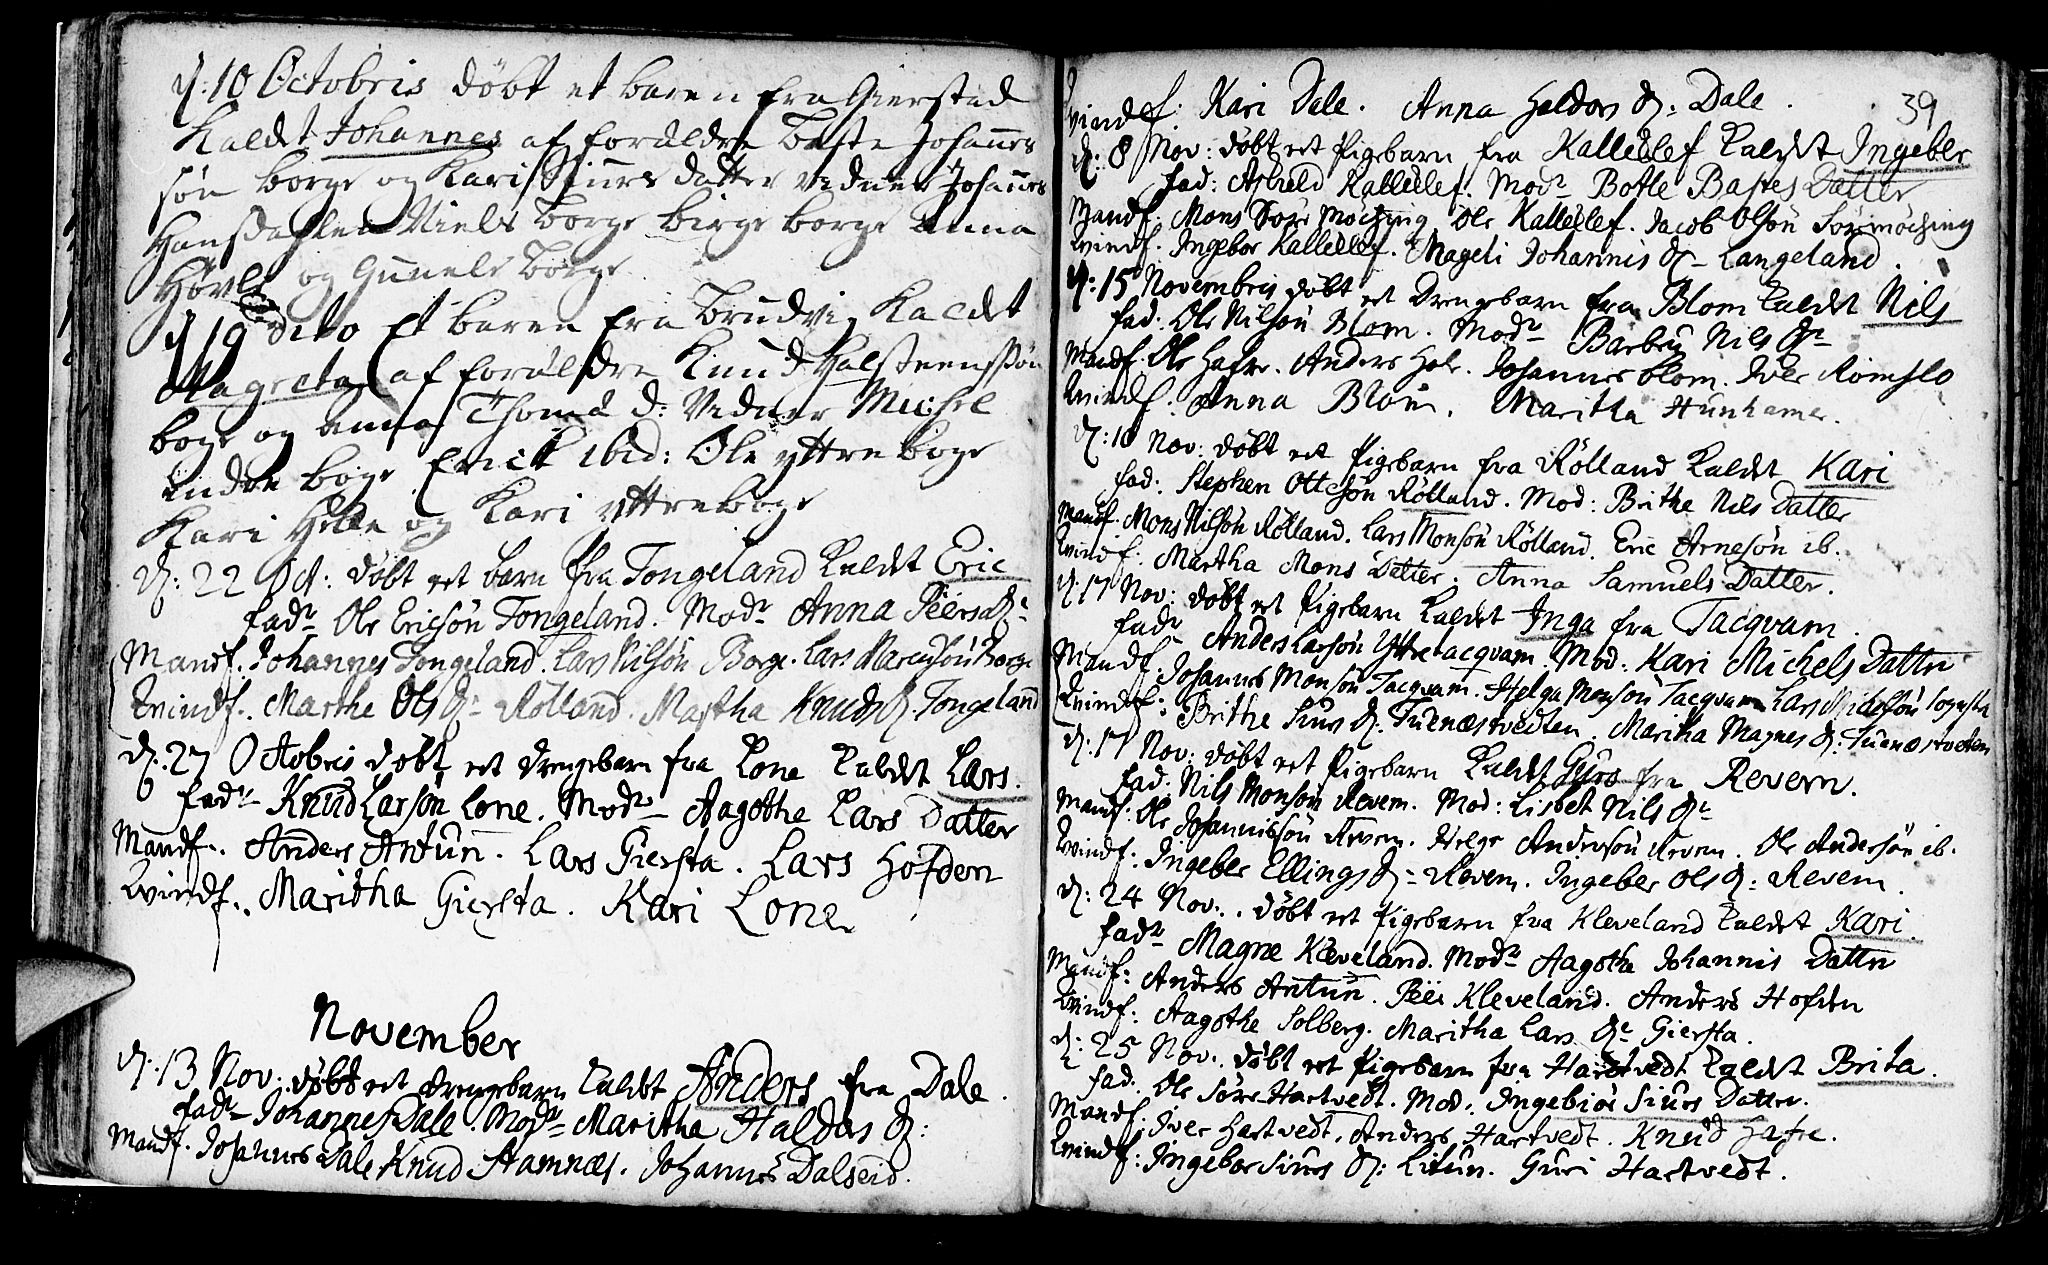 d: 10 Octobris döbt et baren fra Giersted
Kaldt Johannes af foruldre Baste Johannes
søn borge og Kari Siurs datter vidner Johannes
Hansdahlen Niels Borge birge borge anna
Hövle og Gunele Borge
d 19 dito Et baren fra Brudvig Kaldt
Magreta af foruldre Knud Halsteenssøn
boge og anna Thoma d: Vidner Michel
indre boge Erick ibid: Ole yttre boge
Kari Helle og Kari yttreboge
d: 22 Oct: döbt eet barn fra Tongeland kaldet Eric
fadr Ole Ericsön Tongeland. Modr Anna Peersdr
Mandf. Johannes Tongeland. Lars Nilsön Borge. Lars Borge
Qvindf. Marthe Ols dr Rölland. Martha Knuds d. Tongeland
d: 27 Octobris döbt eet drengebarn fra Lone kaldet Lars.
fadr Knud Larsön Lone. Modr Aagothe Lars Datter
Mandf. Anders Antun. Lars Giersta. Lars Hofden
Qvindf. Maritha Giersta. Kari Lone
November
d. 13 Nov. döbt eet drengebarn kaldet Anders fra Dale.
fadr Johannes Dale. Modr Maritha Haldors d:
Mandf. Johannes Dale Knud Stamnæs. Johannes Dalseid.
39
Qvindf: Kari Dale. Anna Haldors d: Dale.
d: 8 Nov: döbt eet Pigebarn fra Kallellef kaldet Ingeber
fad: Kallellef. Modr Botle Bastes Datter
Mandf: Mons Ole Kallellef. Jacob Olsön
Qvindf. Ingebor Kallellef. Mageli Johannis dr Langeland.
d: 15 Novembris döbt eet Drengebarn fra Blom kaldet Nils
fad: Ole Nilsön Blom. Modr Barbru Nils dr
Mandf. Ole Hafre. Anders Hole. Johannes blom. Iver Romslo
Qvindf: Anna Blom. Maritha Hunhamer.
d: 10 Nov: döbt eet Pigebarn fra Rölland kaldet Kari
fad: Stephen Ottesön Rölland. Mod: Brithe Nils Datter
Mandf. Mons Nilsön Rölland. Lars Monsön Rölland. Eric Arnesön ib.
Qvindf: Martha Mons Datter. Anna Samuels Datter.
d. 17 Nov: döbt eet Pigebarn kaldet Inga fra Tacqvam.
fadr Anders Larsön Yttretacqvam. Mod: Kari Michels Datter
Mandf. Johannes Monsön Tacqvam. Helga Monsön Tacqvam Lars
Qvindf: Brithe Siurs d. Maritha Magnes d:
d. 17 Nov: döbt eet Pigebarn kaldet Guro fra Revem.
fad: Nils Monsön Revem. Mod: Lisbet Nils dr
Mandf: Ole Johannissön Revem. Helge Andersön Revem. Ole Andersön ib.
Qvindf: Ingeber Ellings dr Revem. Ingeber Ols d: Revem.
d: 24 Nov: döbt eet Pigebarn fra Kleveland kaldet Kari.
fadr Magne Kleveland. Modr Aagotha Johannis Datter
Mandf: Anders Antun. Peer Kleveland. Anders Hofden
Qvindf: Aagothe Solberg. Maritha Lars dr Giersta.
d: 25 Nov. döbt eet Pigebarn fra Hartvedt kaldet Brita.
fad. Ole Söre Hartvedt. Mod: Ingebior Siurs Datter.
Mandf: Iver Hartvedt. Anders Hartvedt. Knud Hafre.
Qvindf: Ingebor Siurs d: Litun. Guri Hartvedt.